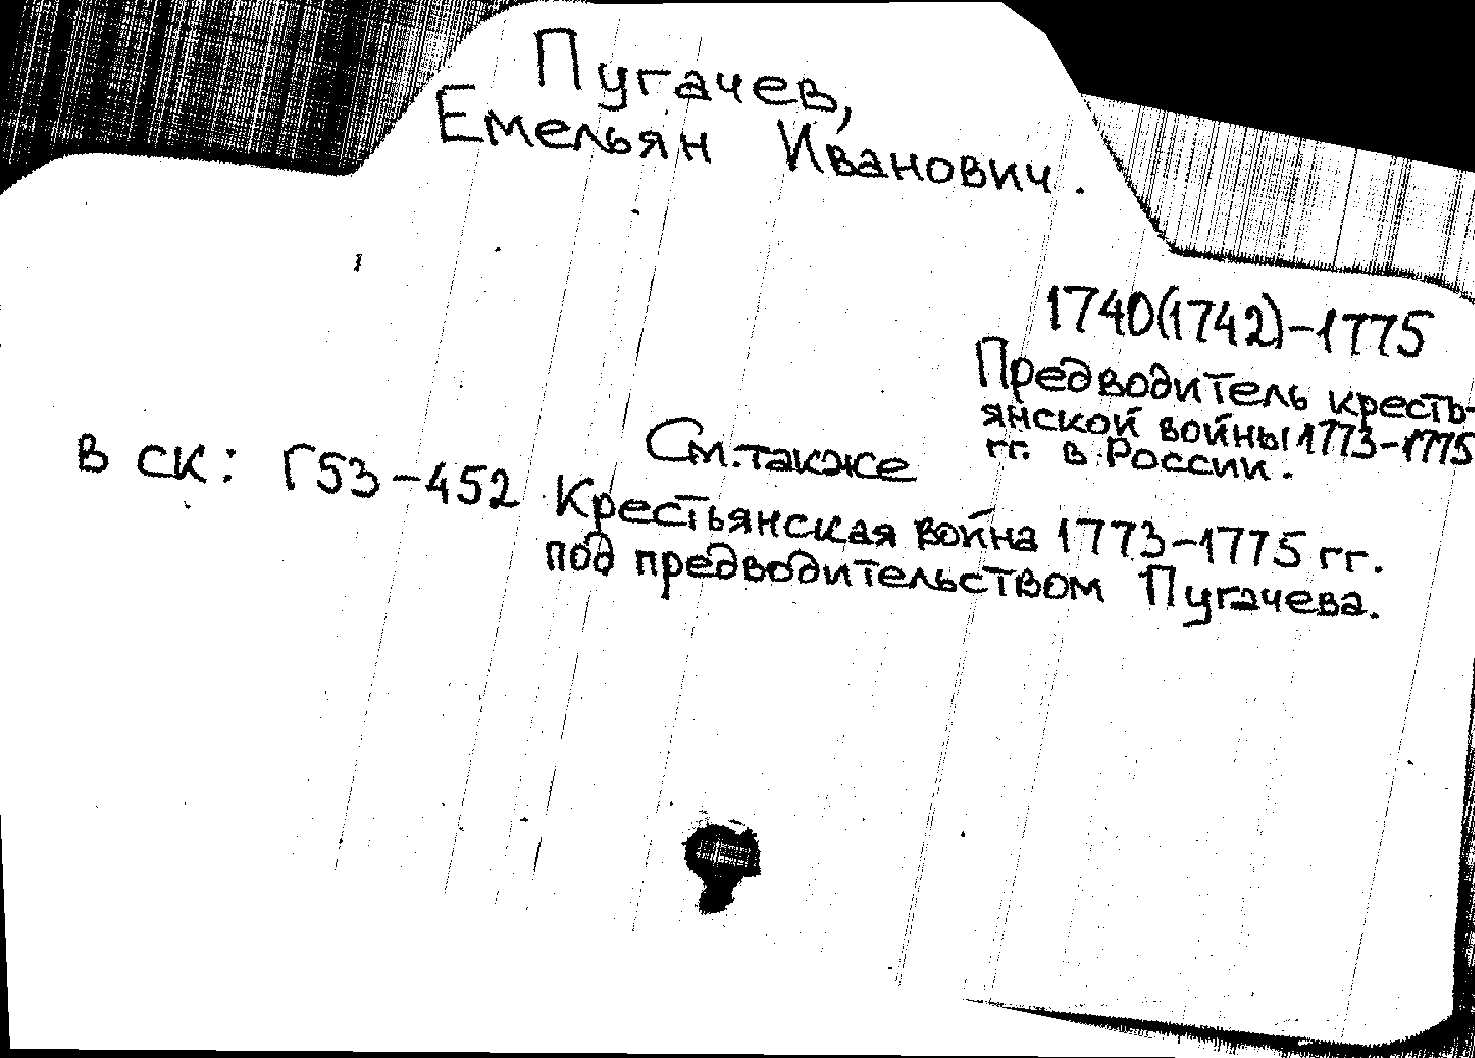 Пугачев,
Емельян Иванович.
1740(1742)-1775
Предводитель кресть-
янской войны 1773-1775
гг. в России.
В СК: Г53-452
См. также
Крестьянская война 1773-1775 гг.
под предводительством Пугачева.